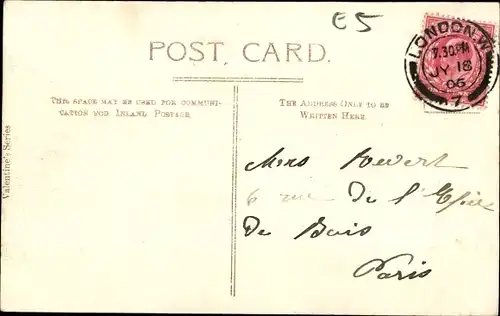 E5
POST CARD.
LONDON.W.
7.30PM
JY 18
06
7
THIS SPACE MAY BE USED FOR COMMUNI-
CATION FOR INLAND POSTAGE
THE ADDRESS ONLY TO BE
WRITTEN HERE.
Valentine's Series
6 rue de l'
de Bois
Paris